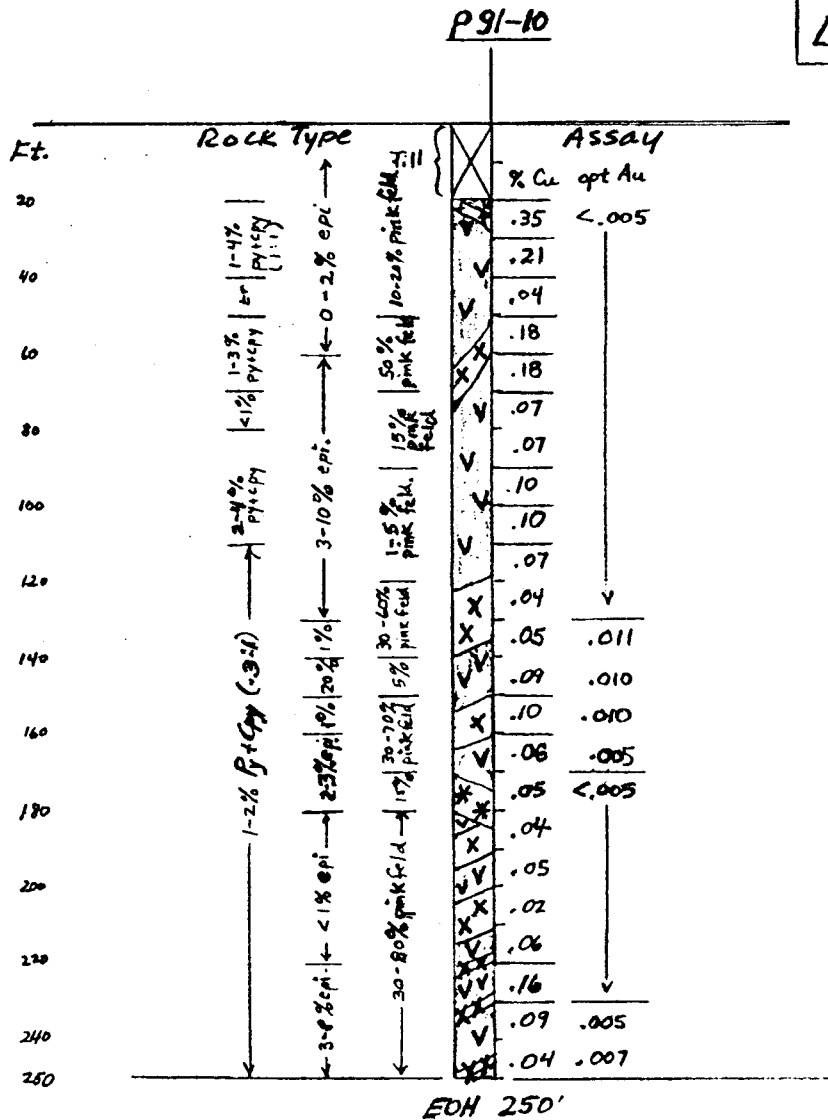 P91-10
L
Rock Type
Assay
Ft.
% Cu opt Au
20
40
60
80
100
120
140
160
180
200
220
240
250
1-4% py+cpy (1:1)
tr
1-3% py+cpy
<1%
2-4% py+cpy
1-2% Py+Cpy (.3:1)
0-2% epi
3-10% epi.
1%
20%
1%
2-3% epi
<1% epi
3-8% epi
fill
10-20% pink feld.
50% pink feld
15% pink feld
1-5% pink feld.
30-60% pink feld
5%
30-70% pink feld
15%
30-80% pink feld
.35 <.005
.21
.04
.18
.18
.07
.07
.10
.10
.07
.04
.05 .011
.09 .010
.10 .010
.06 .005
.05 <.005
.04
.05
.02
.06
.16
.09 .005
.04 .007
EOH 250'